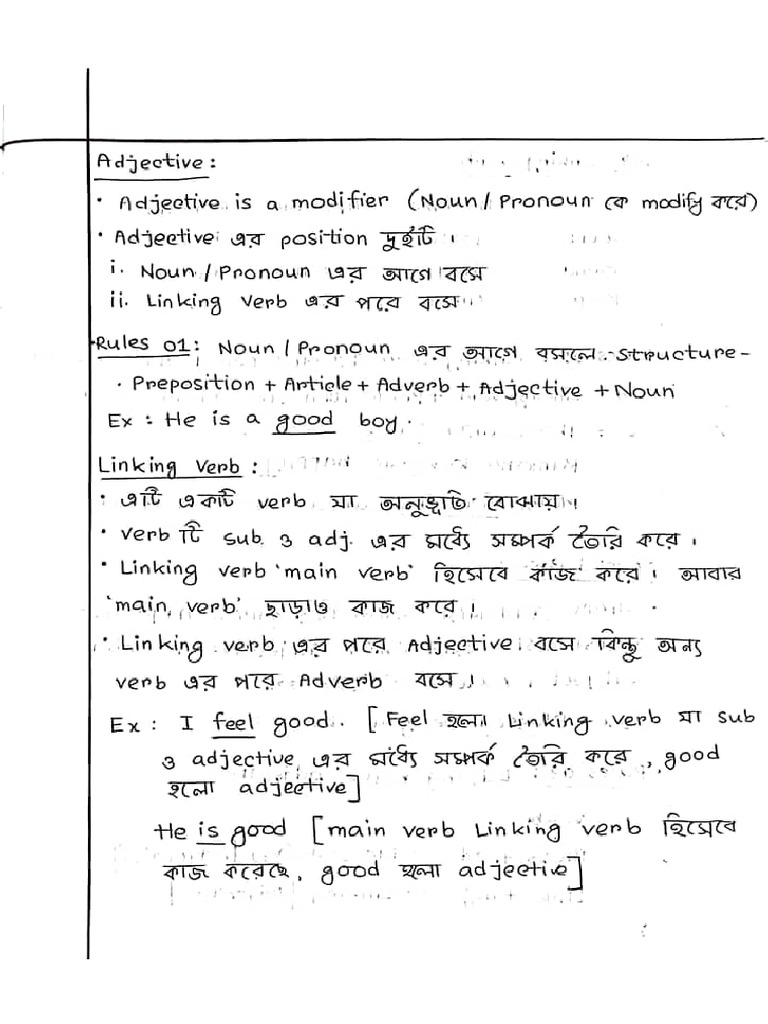 Adjective:
• Adjective is a modifier (Noun/Pronoun কে modify করে)
• Adjective এর position দুইটি।
i. Noun/Pronoun এর আগে বসে
ii. Linking Verb এর পরে বসে
Rules 01: Noun/Pronoun এর আগে বসলে structure-
Preposition + Article + Adverb + Adjective + Noun
Ex: He is a good boy.
Linking Verb:
• এটি একটি verb যা অনুভূতি বোঝায়।
• verb টি sub ও adj. এর মধ্যে সম্পর্ক তৈরি করে।
• Linking verb 'main verb' হিসেবে কাজ করে। আবার
'main verb' ছাড়াও কাজ করে।
• Linking verb এর পরে Adjective বসে কিন্তু অন্য
verb এর পরে Adverb বসে।
Ex: I feel good. [Feel হলো Linking verb যা sub
ও adjective এর মধ্যে সম্পর্ক তৈরি করে, good
হলো adjective]
He is good [main verb Linking verb হিসেবে
কাজ করেছে, good হলো adjective]